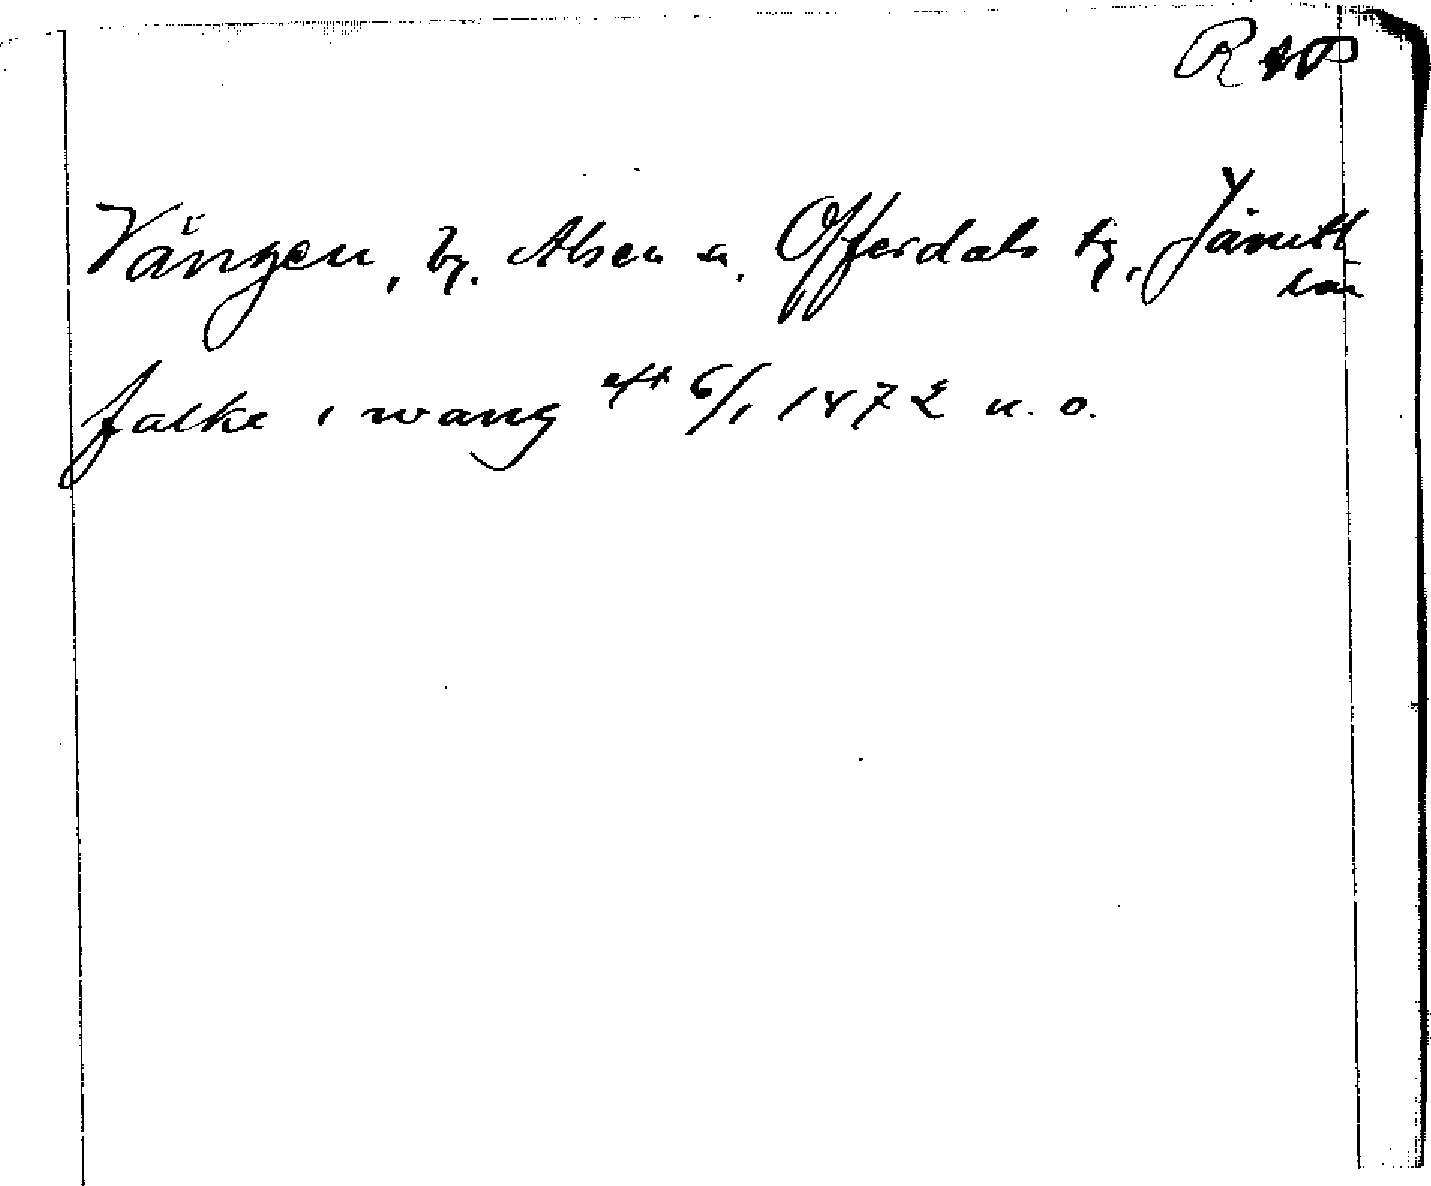 Vången, by. Alsen o. Offerdals tg, Jämtl
län
falke i wang eft 6/1 1472 u. o.